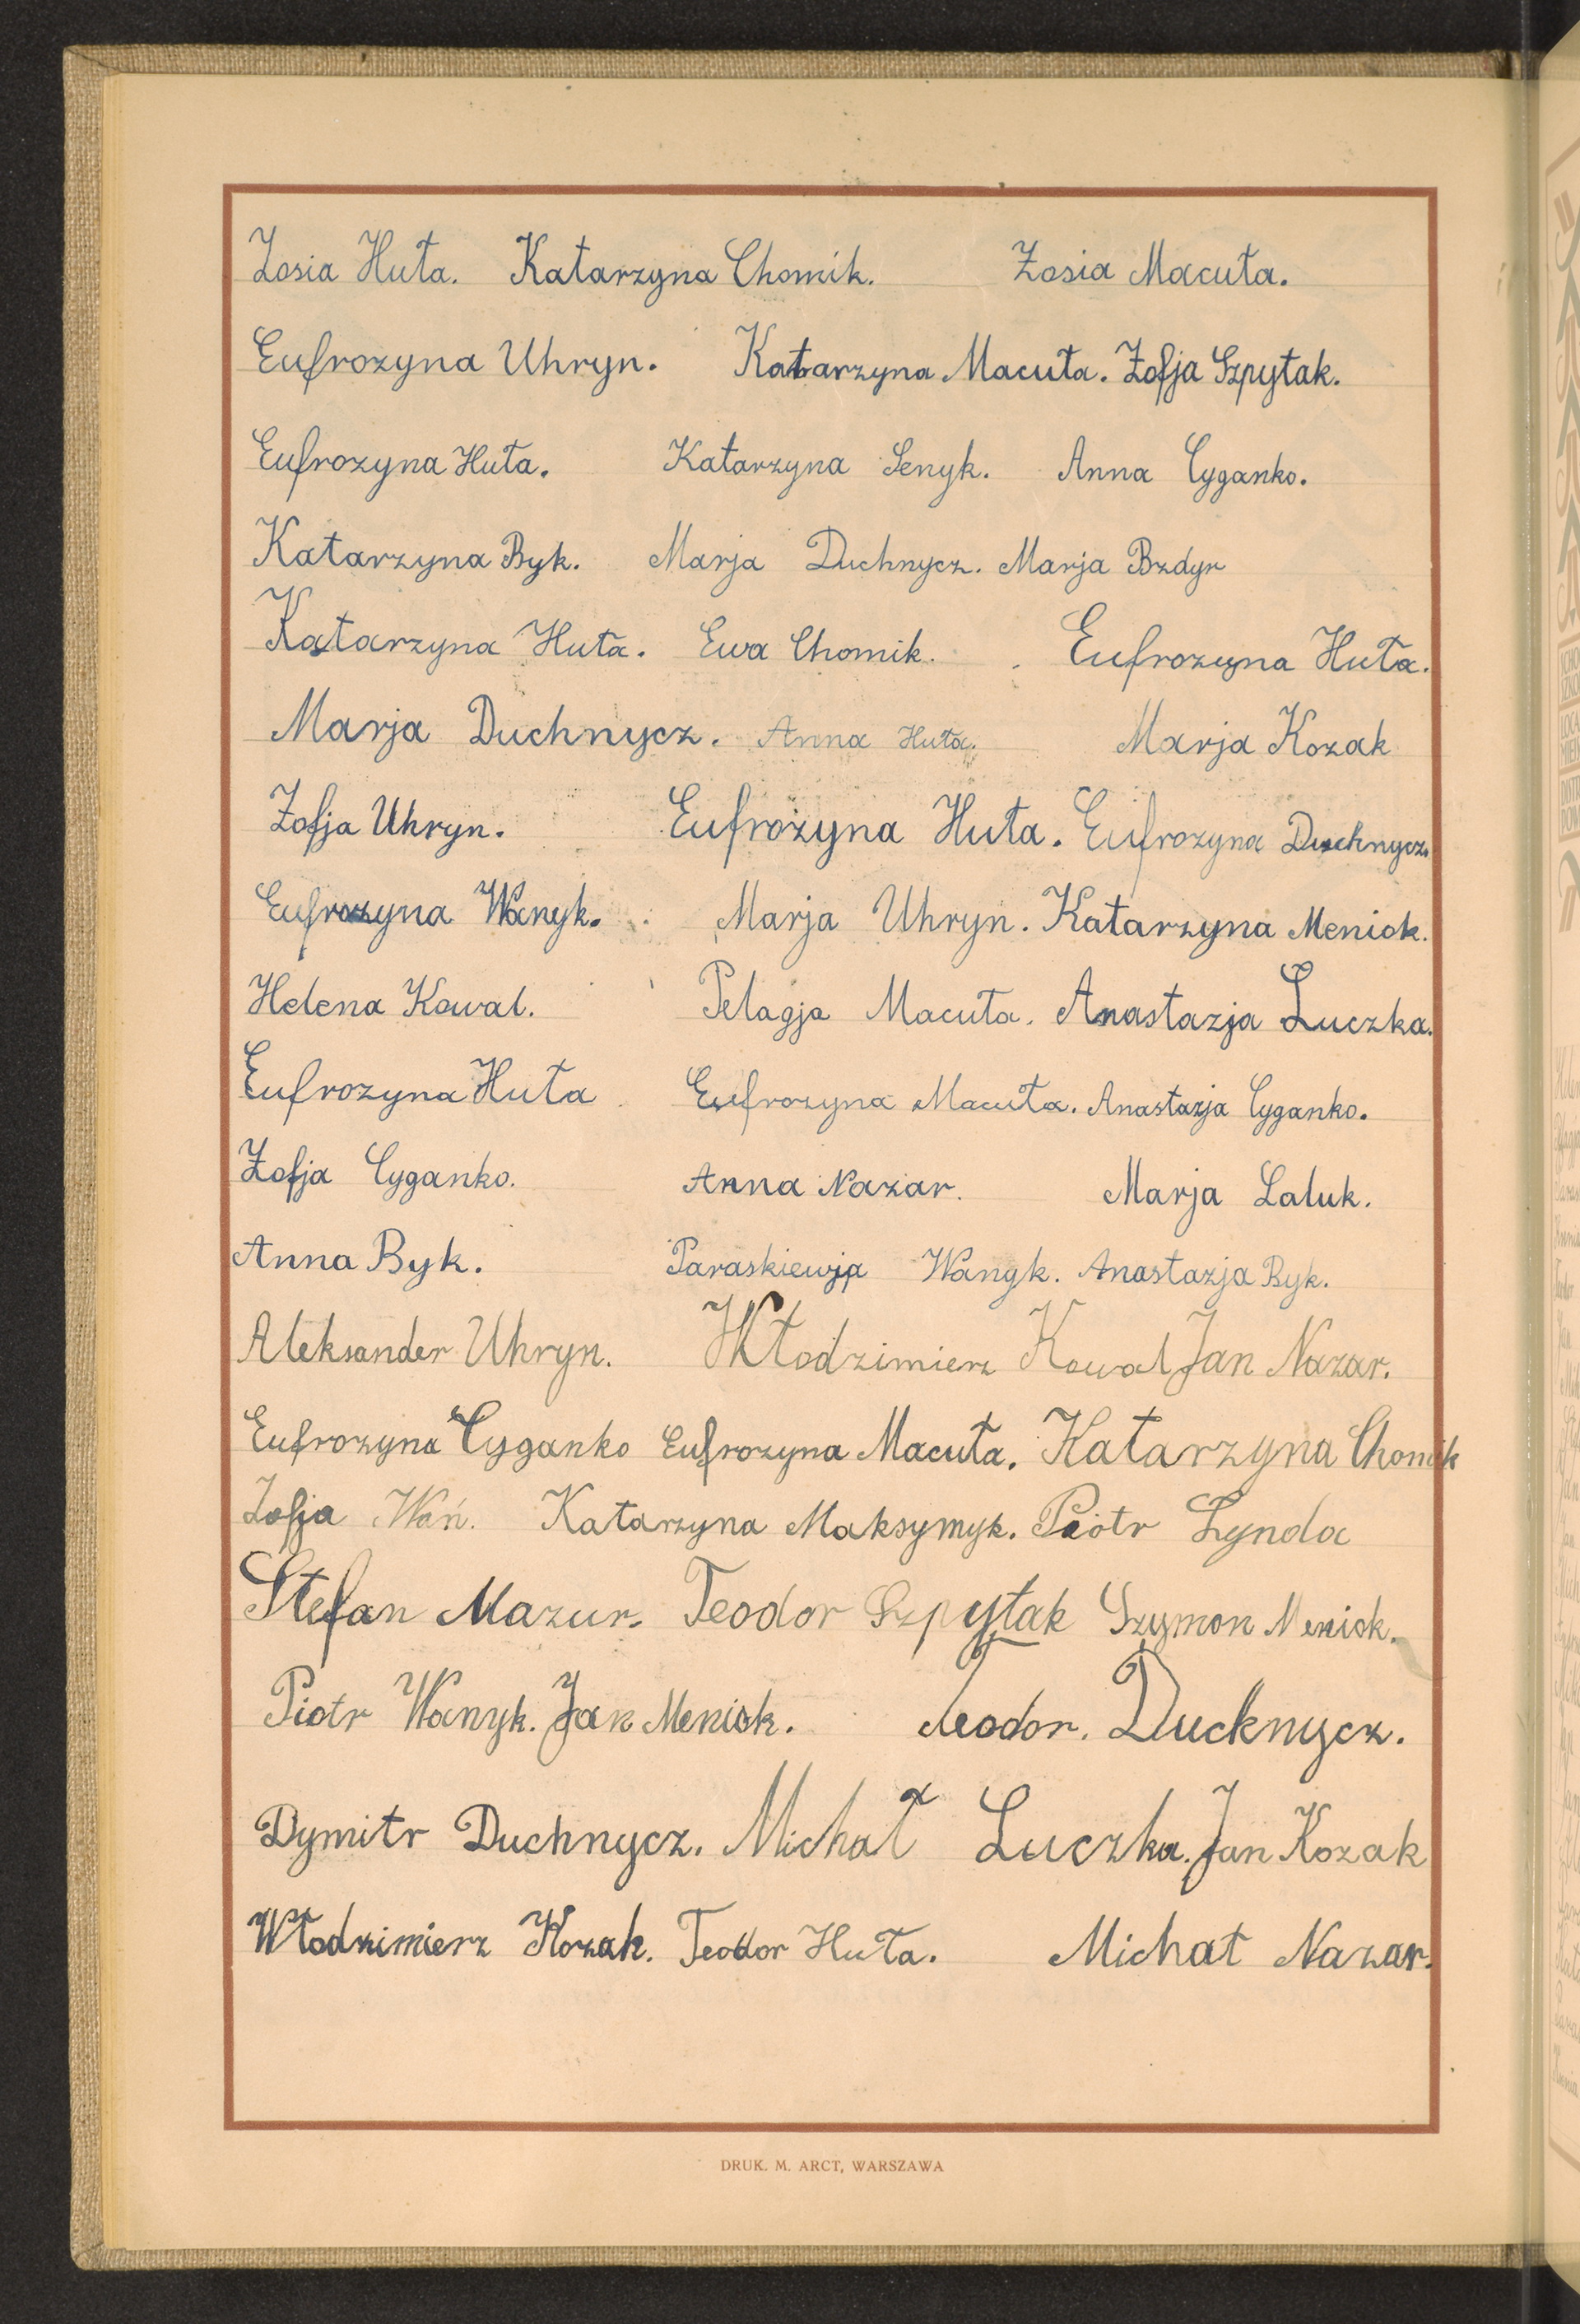 Zosia Huta. Katarzyna Chomik. Zosia Macuta.
Eufrozyna Uhryn. Katarzyna Macuta. Zofja Szpytak.
Eufrozyna Huta. Katarzyna Senyk. Anna Cyganko.
Katarzyna Byk. Marja Duchnycz. Marja Bzdyr
Katarzyna Huta. Ewa Chomik. Eufrozyna Huta.
Marja Duchnycz. Anna Huta. Marja Kozak
Zofja Uhryn. Eufrozyna Huta. Eufrozyna Duchnycz.
Eufrozyna Wanyk. Marja Uhryn. Katarzyna Meniok.
Helena Kowal. Pelagja Macuta. Anastazja Luczka.
Eufrozyna Huta Eufrozyna Macuta. Anastazja Cyganko.
Zofja Cyganko. Anna Nazar. Marja Laluk.
Anna Byk. Paraskiewja Wanyk. Anastazja Byk.
Aleksander Uhryn. Włodzimierz Kowal Jan Nazar.
Eufrozyna Cyganko Eufrozyna Macuta. Katarzyna Chomik
Zofja Wań. Katarzyna Maksymyk. Piotr Lynda
Stefan Mazur. Teodor Szpytak Szymon Meniok.
Piotr Wanyk. Jan Meniok. Teodor. Duchnycz.
Dymitr Duchnycz. Michał Luczka. Jan Kozak
Włodzimierz Kozak. Teodor Huta. Michał Nazar.
DRUK. M. ARCT, WARSZAWA